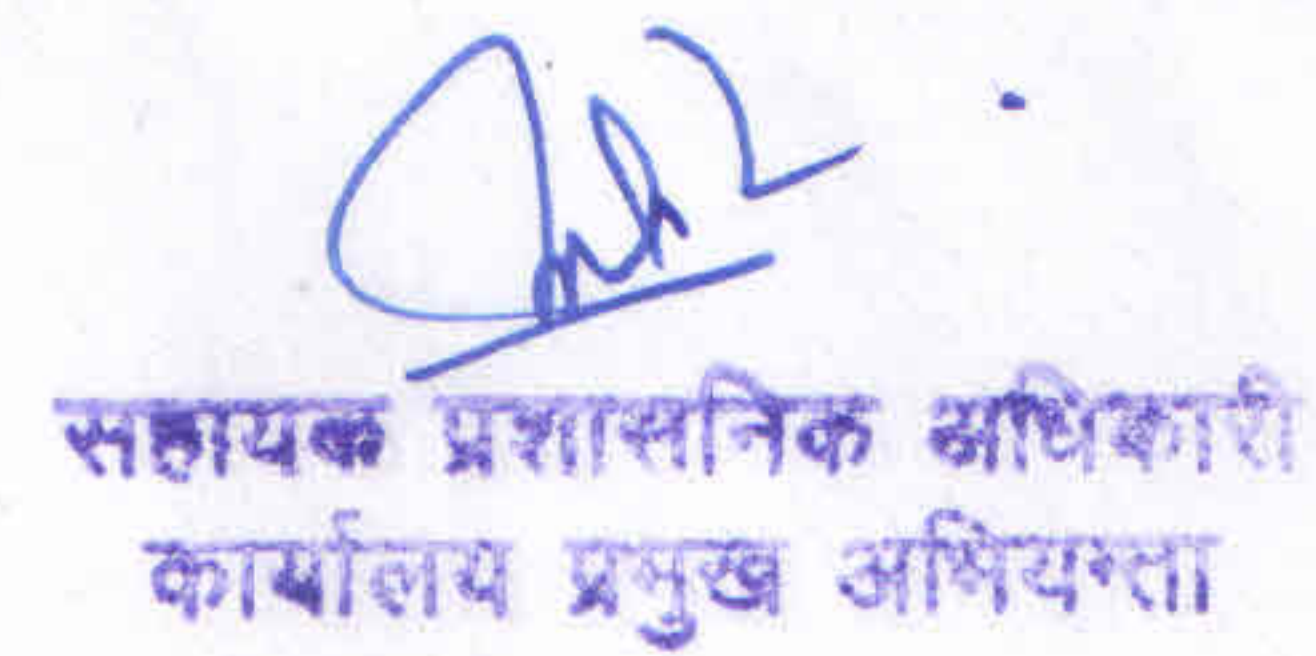 सहायक प्रशासनिक अधिकारी
कार्यालय प्रमुख अभियन्ता